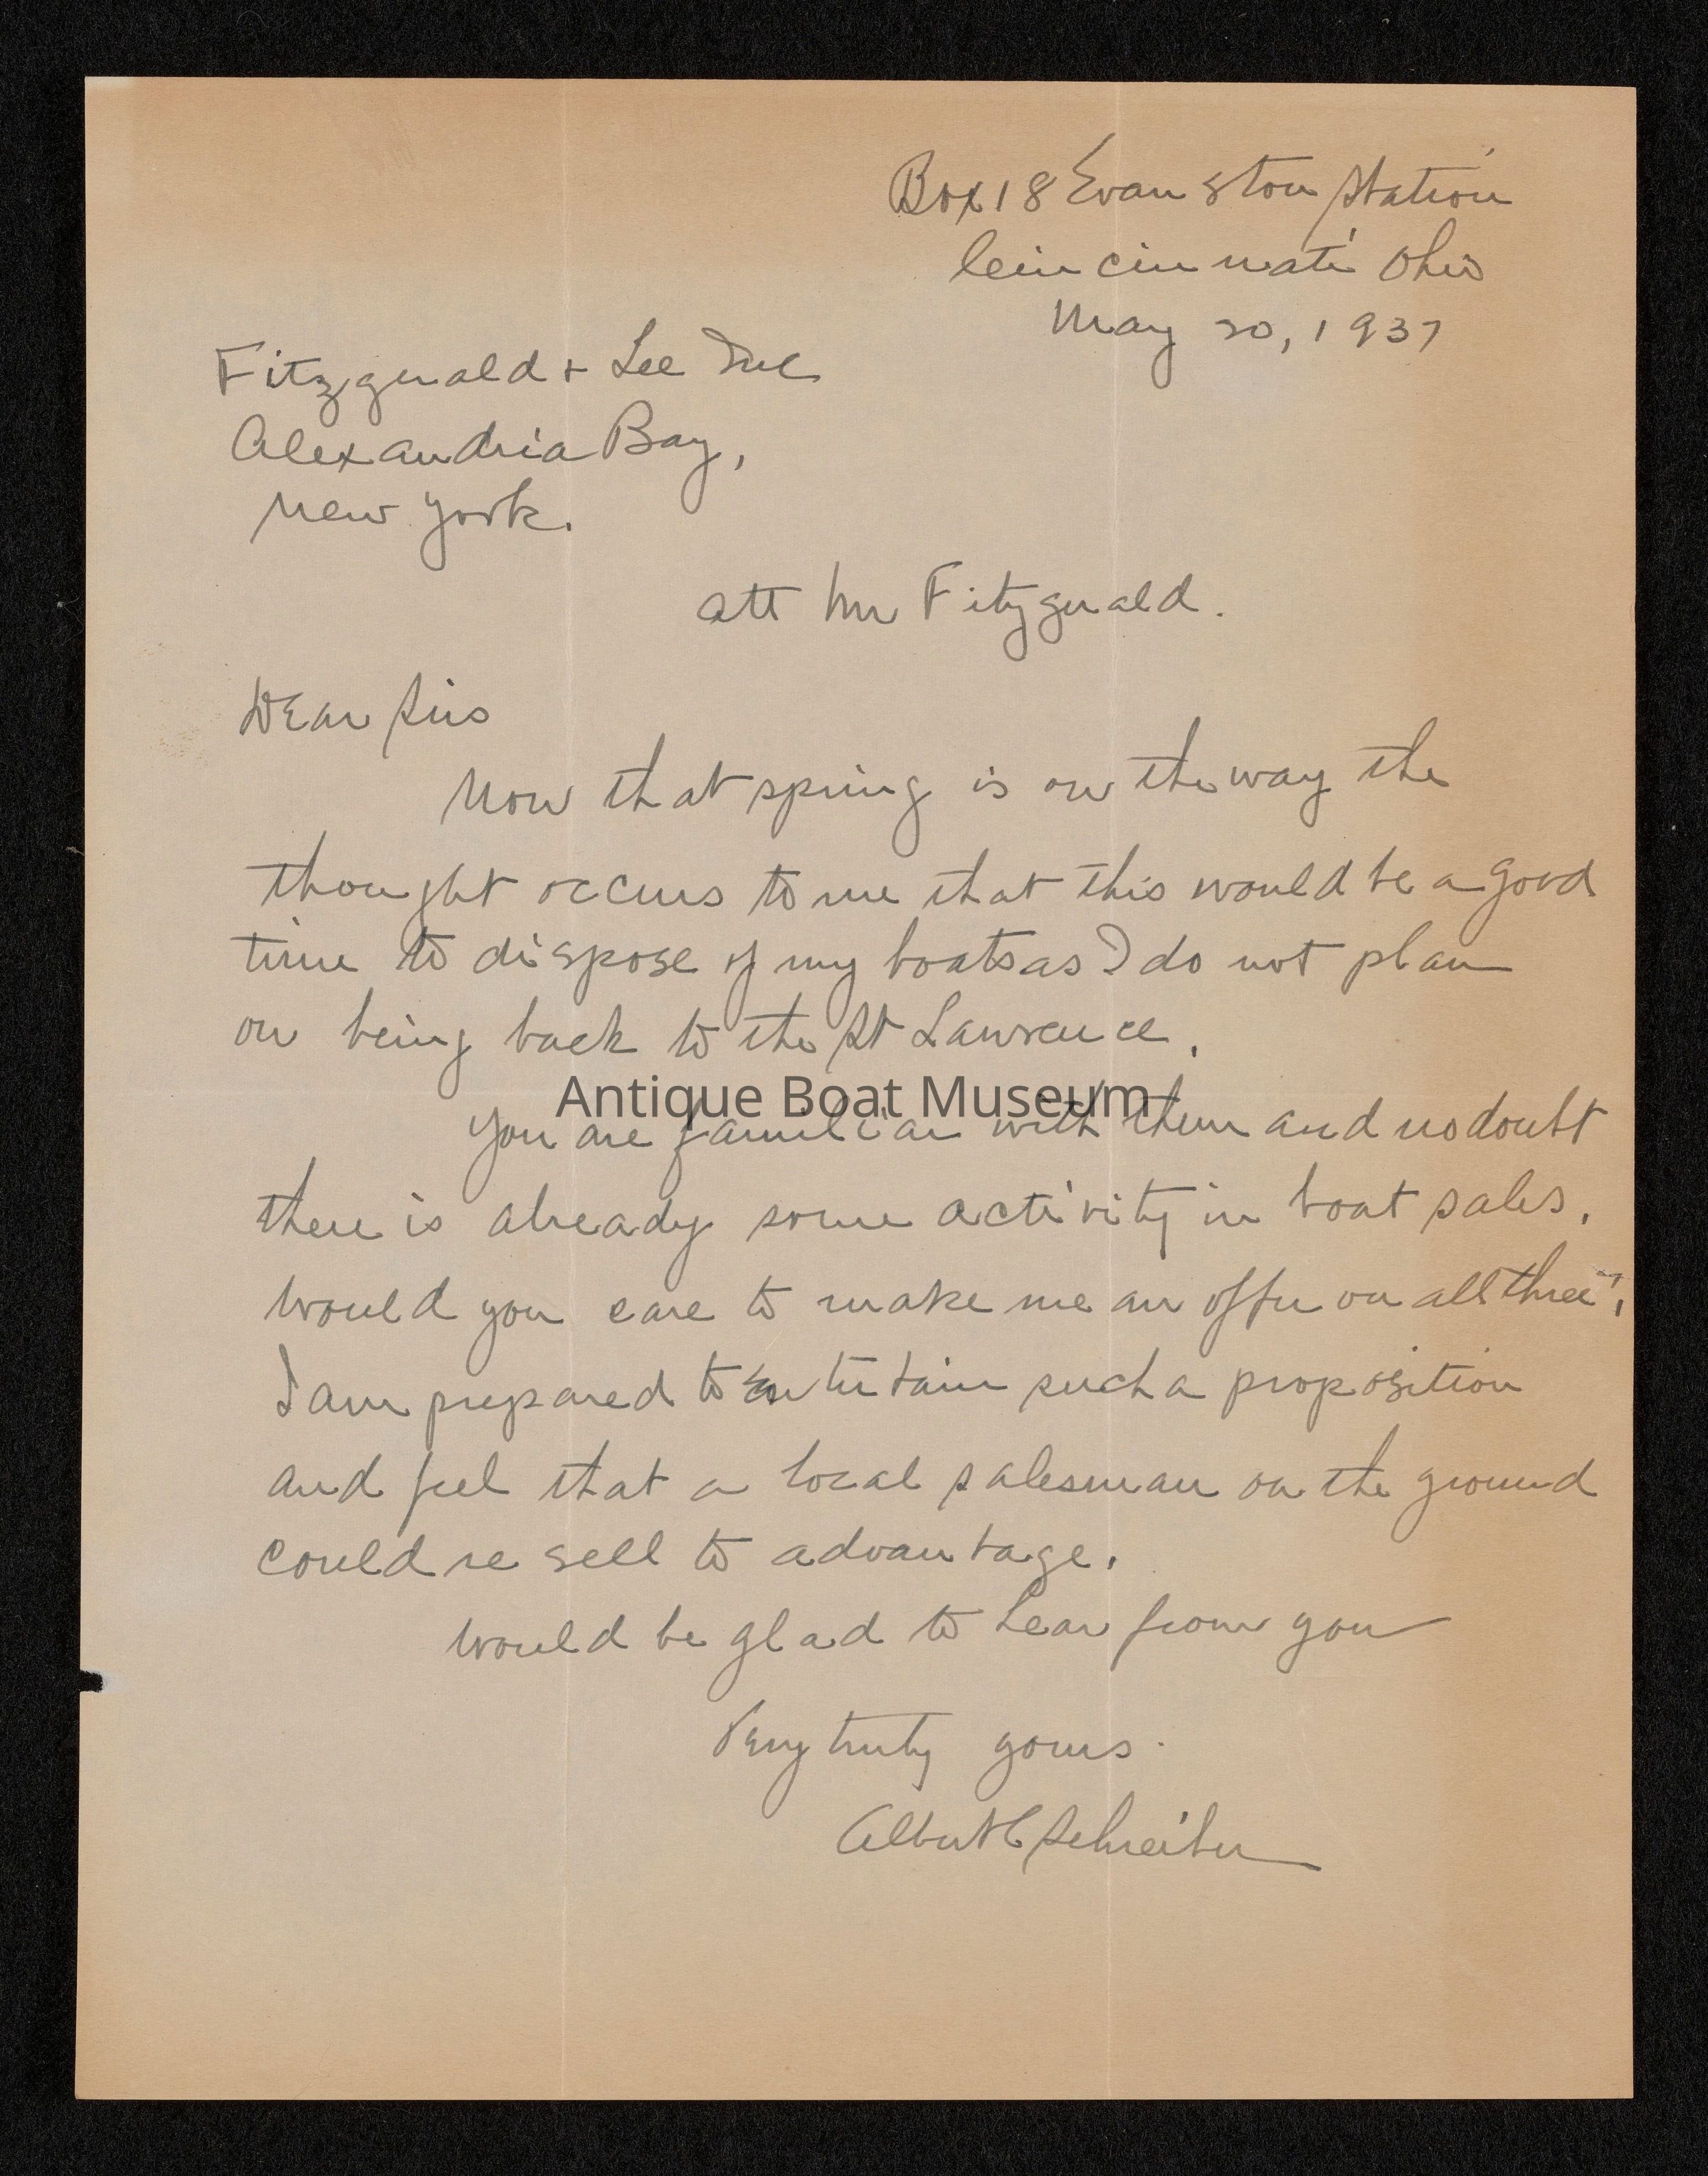 Box 18 Evanston Station
Cincinnati Ohio
May 20, 1937
Fitzgerald + Lee Inc
Alexandria Bay,
New York.
Att Mr Fitzgerald.
Dear Sirs
Now that spring is on the way the
thought occurs to me that this would be a good
time to dispose of my boats as I do not plan
on being back to the St Lawrence.
Antique Boat Museum
You are familiar with them and no doubt
there is already some activity in boat sales.
Would you care to make me an offer on all three?
I am prepared to entertain such a proposition
and feel that a local salesman on the ground
could resell to advantage.
Would be glad to hear from you
Very truly yours.
Albert C Schreiber